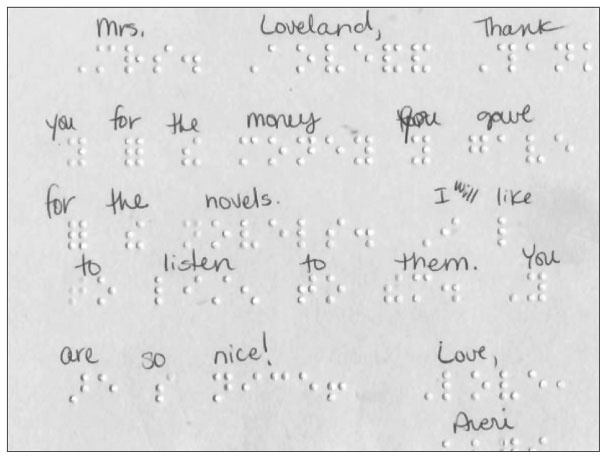 Mrs. Loveland, Thank
you for the money you gave
for the novels. I will like
to listen to them. You
are so nice! Love,
Averi